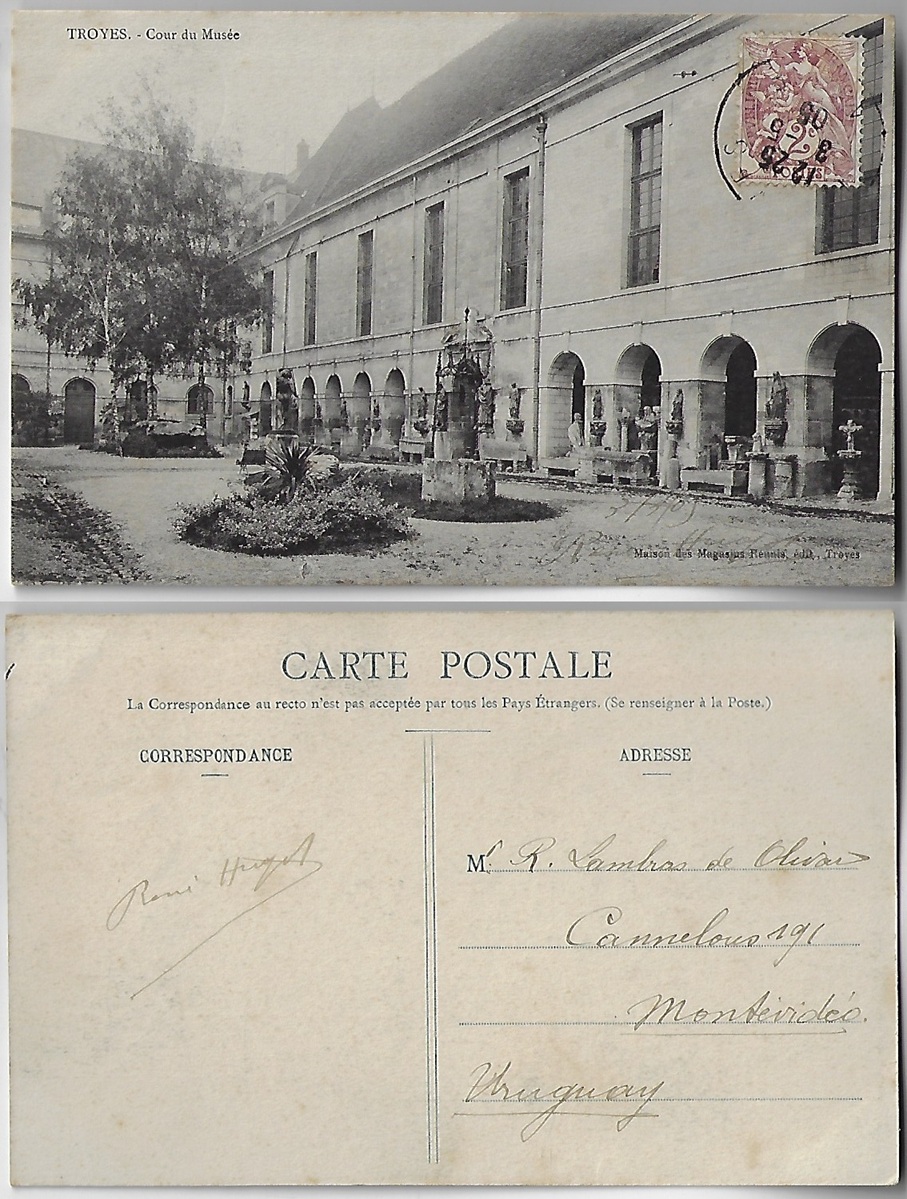 TROYES. - Cour du Musée
2
12 25
3
05
Maison des Magasins Réunis, édit., Troyes
CARTE POSTALE
La Correspondance au recto n'est pas acceptée par tous les Pays Étrangers. (Se renseigner à la Poste.)
CORRESPONDANCE
ADRESSE
René Hugot
Mr. R. Lambras de Olivar
Cannelous 191
Montévidéo.
Uruguay